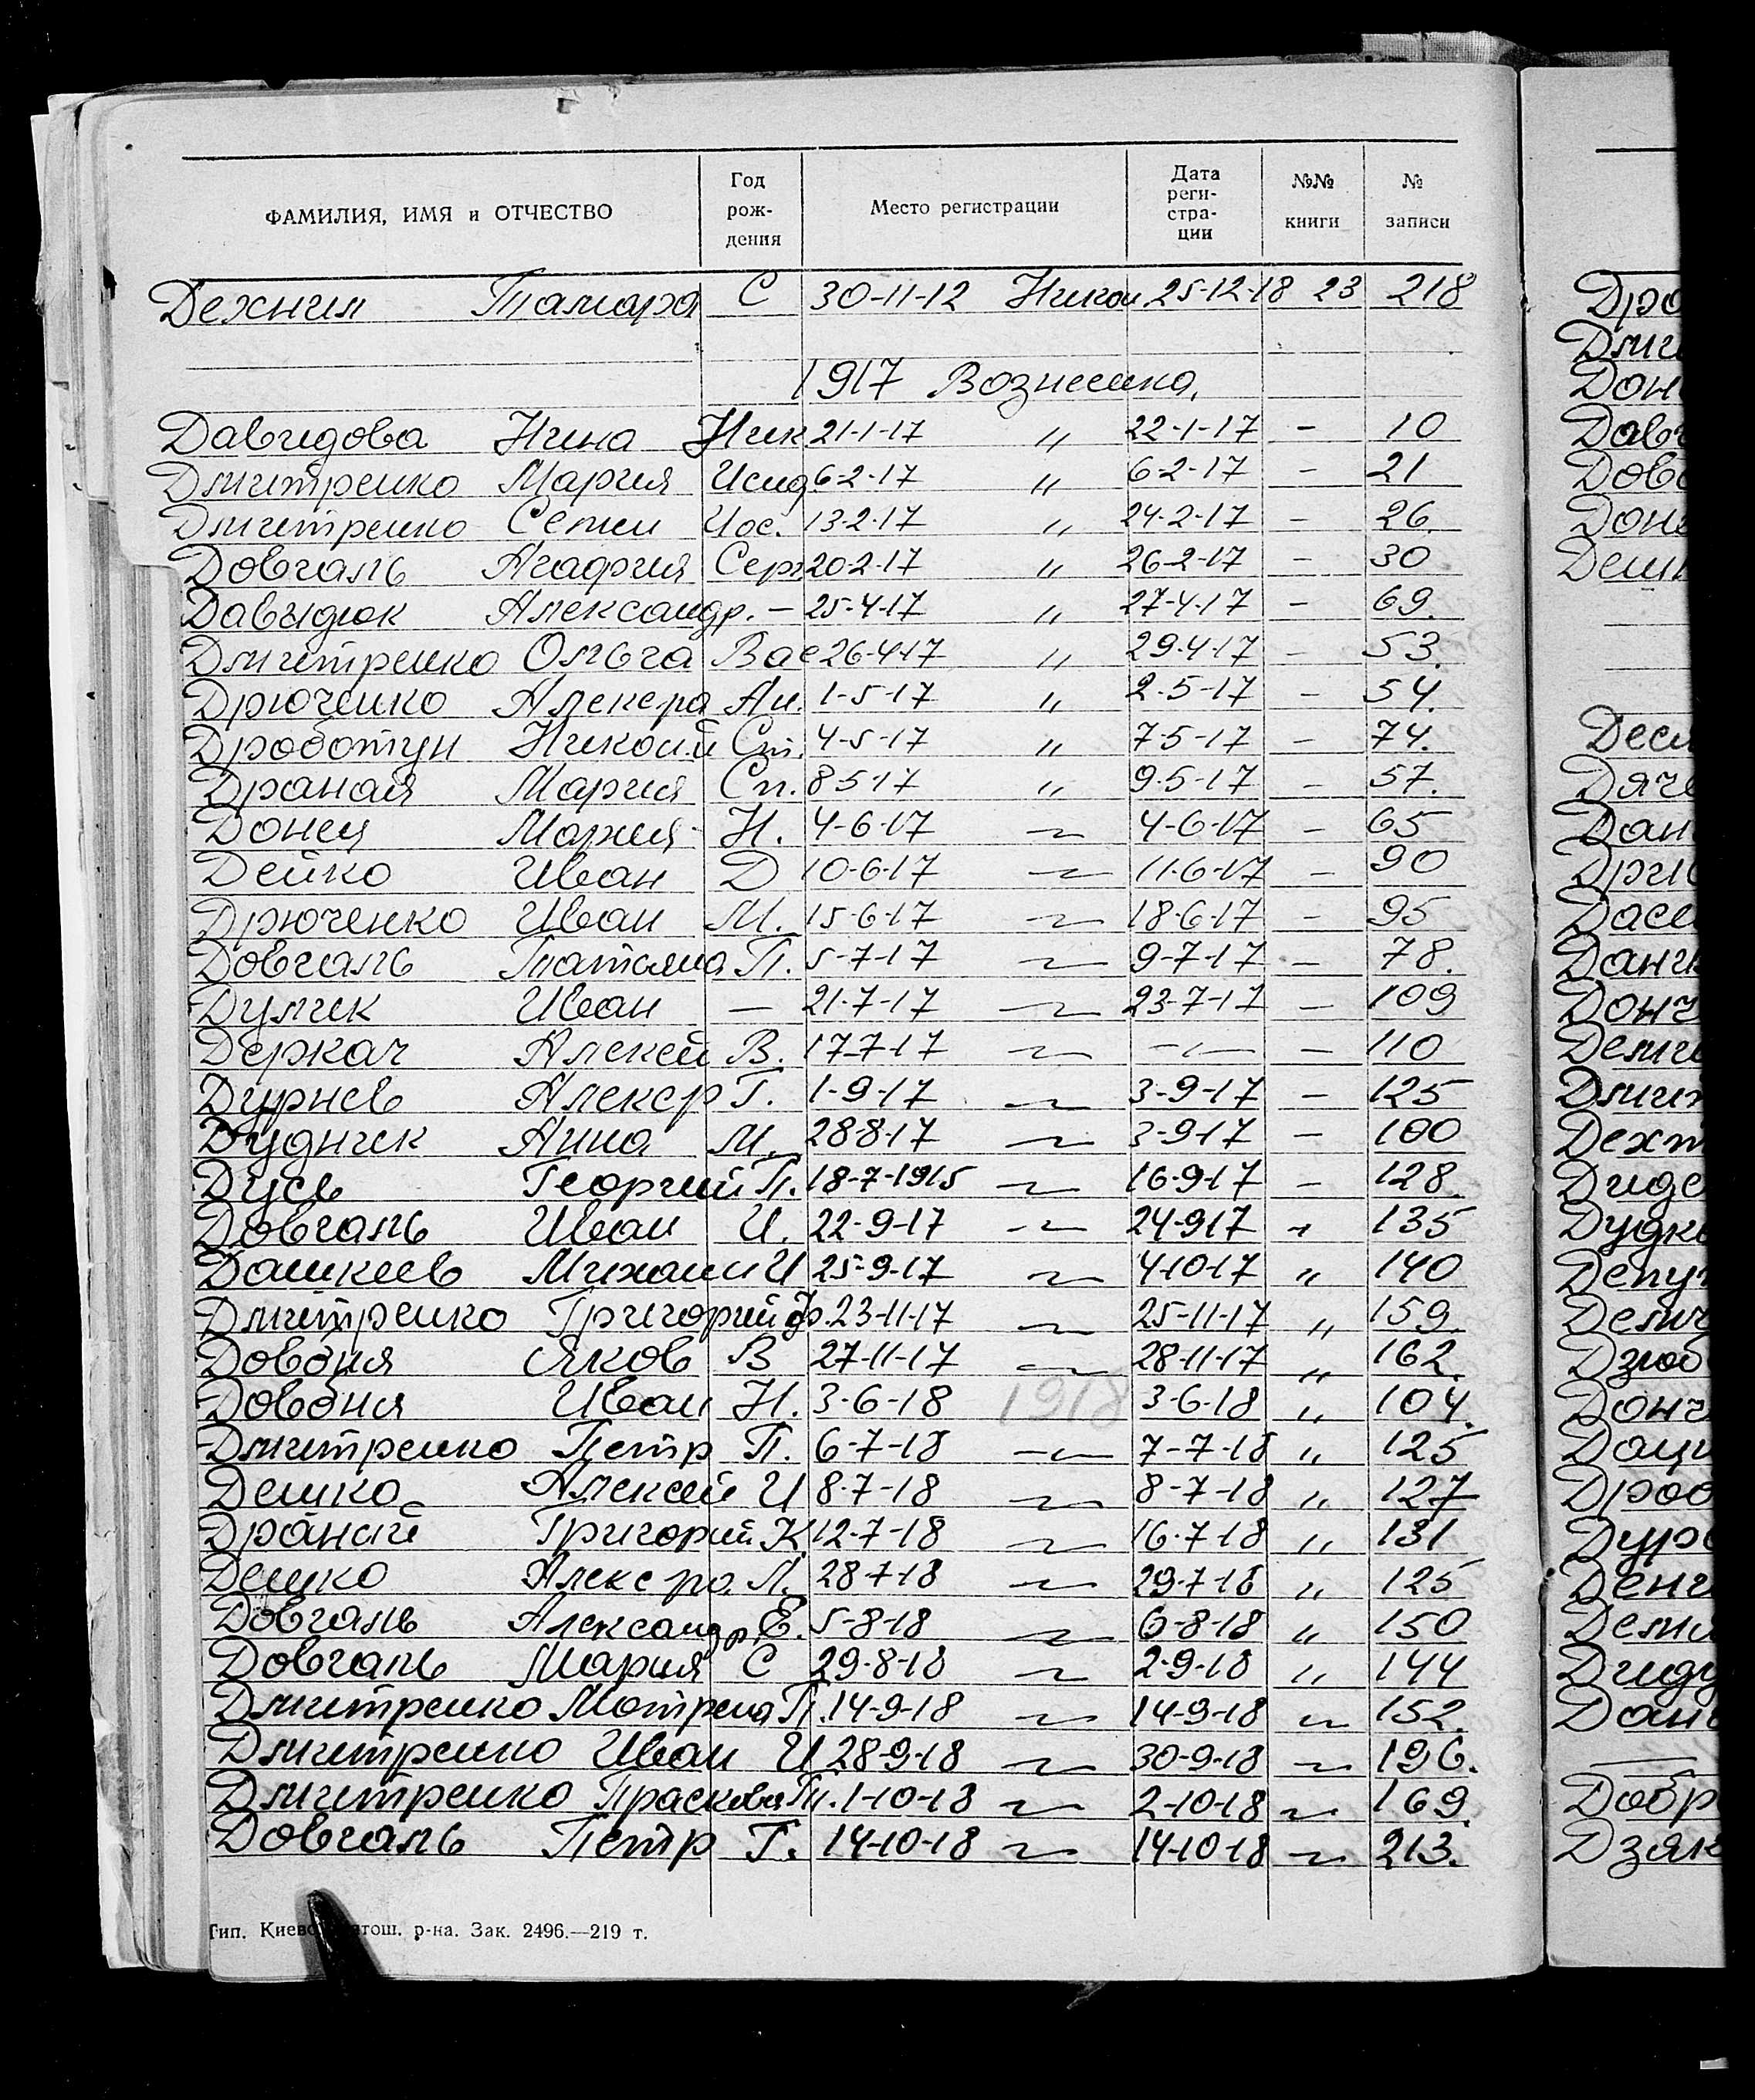 ФАМИЛИЯ, ИМЯ и ОТЧЕСТВО Год рож- дения Место регистрации Дата реги- стра- ции №№ книги № записи
Дехнич Тамара С 30-11-12 Никол 25-12-18 23 218
1917 Вознесенка,
Давидова Нина Ник 21-1-17 " 22-1-17 - 10
Дмитренко Мария Исид 6-2-17 " 6-2-17 - 21
Дмитренко Семен Иос. 13-2-17 " 24-2-17 - 26.
Довгаль Агафия Серг 20-2-17 " 26-2-17 - 30
Давидюк Александр. - 25-4-17 " 27-4-17 - 69.
Дмитренко Ольга Вас 26-4-17 " 29-4-17 - 53.
Дрюченко Алексра Ан. 1-5-17 " 2-5-17 - 54.
Дроботун Николй Сп. 4-5-17 " 7-5-17 - 74.
Драная Мария Сп. 8-5-17 " 9-5-17 - 57.
Донец Мария Н. 4-6-17 " 4-6-17 - 65
Дейко Иван Д 10-6-17 " 11-6-17 - 90
Дрюченко Иван М. 15-6-17 " 18-6-17 - 95
Довгаль Татьяна П. 5-7-17 " 9-7-17 - 78.
Дулик Иван - 21-7-17 " 23-7-17 - 109
Деркач Алексей В. 17-7-17 " -"- - 110
Дурнев Алекср Г. 1-9-17 " 3-9-17 - 125
Дудник Анна М. 28-8-17 " 3-9-17 - 100
Дусь Георгий П. 18-7-1915 " 16-9-17 - 128
Довгаль Иван И. 22-9-17 -"- 24-9-17 " 135
Дашкеев Михаил И 25-9-17 " 4-10-17 " 140
Дмитренко Григорий Ф. 23-11-17 " 25-11-17 " 159
Довбня Яков В 27-11-17 " 28-11-17 " 162
Довбня Иван Н. 3-6-18 1918 3-6-18 " 104.
Дмитренко Петр П. 6-7-18 -"- 7-7-18 " 125
Дешко Алексей И 8-7-18 " 8-7-18 " 127
Драний Григорий К 12-7-18 " 16-7-18 " 131
Дешко Алексра Л. 28-7-18 " 29-7-18 " 125
Довгаль Александр Е. 5-8-18 " 6-8-18 " 150
Довгаль Мария С 29-8-18 " 2-9-18 " 144
Дмитренко Мотрена П. 14-9-18 " 14-9-18 " 152.
Дмитренко Иван И 28-9-18 " 30-9-18 " 196.
Дмитренко Прасковя Тт. 1-10-18 " 2-10-18 " 169
Довгаль Петр Г. 14-10-18 " 14-10-18 " 213.
Тип. Киево гош. р-на. Зак. 2496.—219 т.